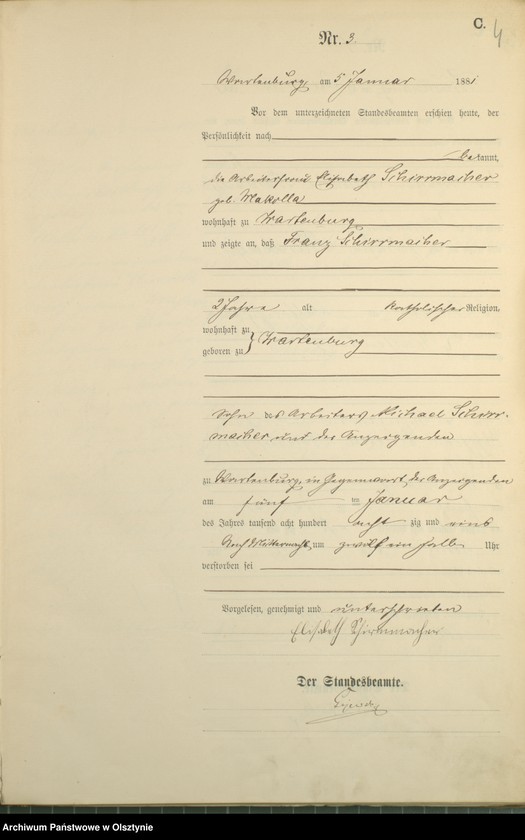 C.
4
Nr. 3.
Wartenburg am 5 Januar 1881
Vor dem unterzeichneten Standesbeamten erschien heute, der
Persönlichkeit nach
bekannt,
die Arbeiterfrau Elisabeth Schirrmacher
geb. Makolla
wohnhaft zu Wartenburg
und zeigte an, daß Franz Schirrmacher
2 Jahre alt katholischer Religion,
wohnhaft zu
geboren zu } Wartenburg
Sohn des Arbeiters Michael Schirr-
macher und der Anzeigenden
zu Wartenburg, in Gegenwart der Anzeigenden
am fünf ten Januar
des Jahres tausend acht hundert acht zig und eins
Nach Mitternacht um zwölf ein halb Uhr
verstorben sei
Vorgelesen, genehmigt und unterschrieben
Elisabeth Schirrmacher
Der Standesbeamte.
Archiwum Państwowe w Olsztynie